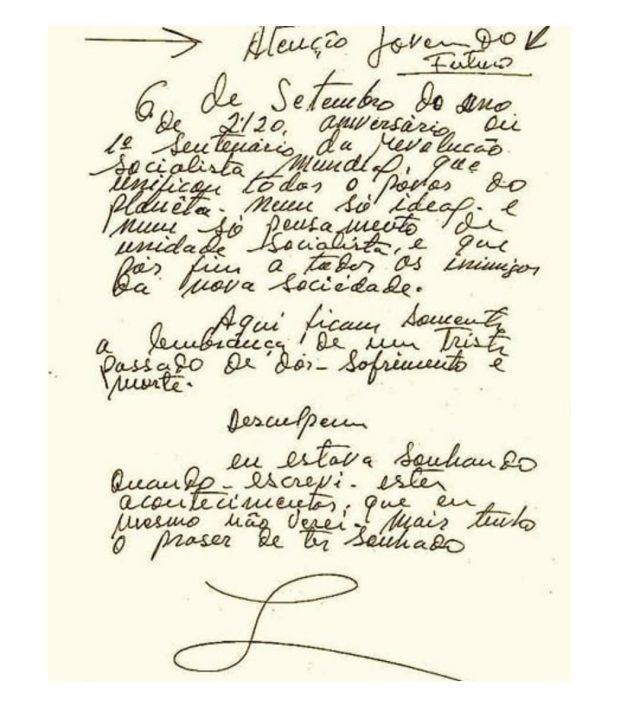 Atenção Jovem do
Futuro
6 de Setembro do ano
de 2120, aniversário ou
1º Sentenário da revolução
Socialista Mundial, que
unificou todos o povos do
planêta. num só ideal. e
num só pensamento de
unidade Socialista, e que
pôs fim a todos os inimigos
da nova sociedade.
Aqui ficam somente
a lembrança de um triste
passado de dor – sofrimento e
morte.
Desculpem
eu estava sonhando
quando – escrevi. estes
acontecimentos, que eu
mesmo não verei. mais tenho
o praser de ter sonhado